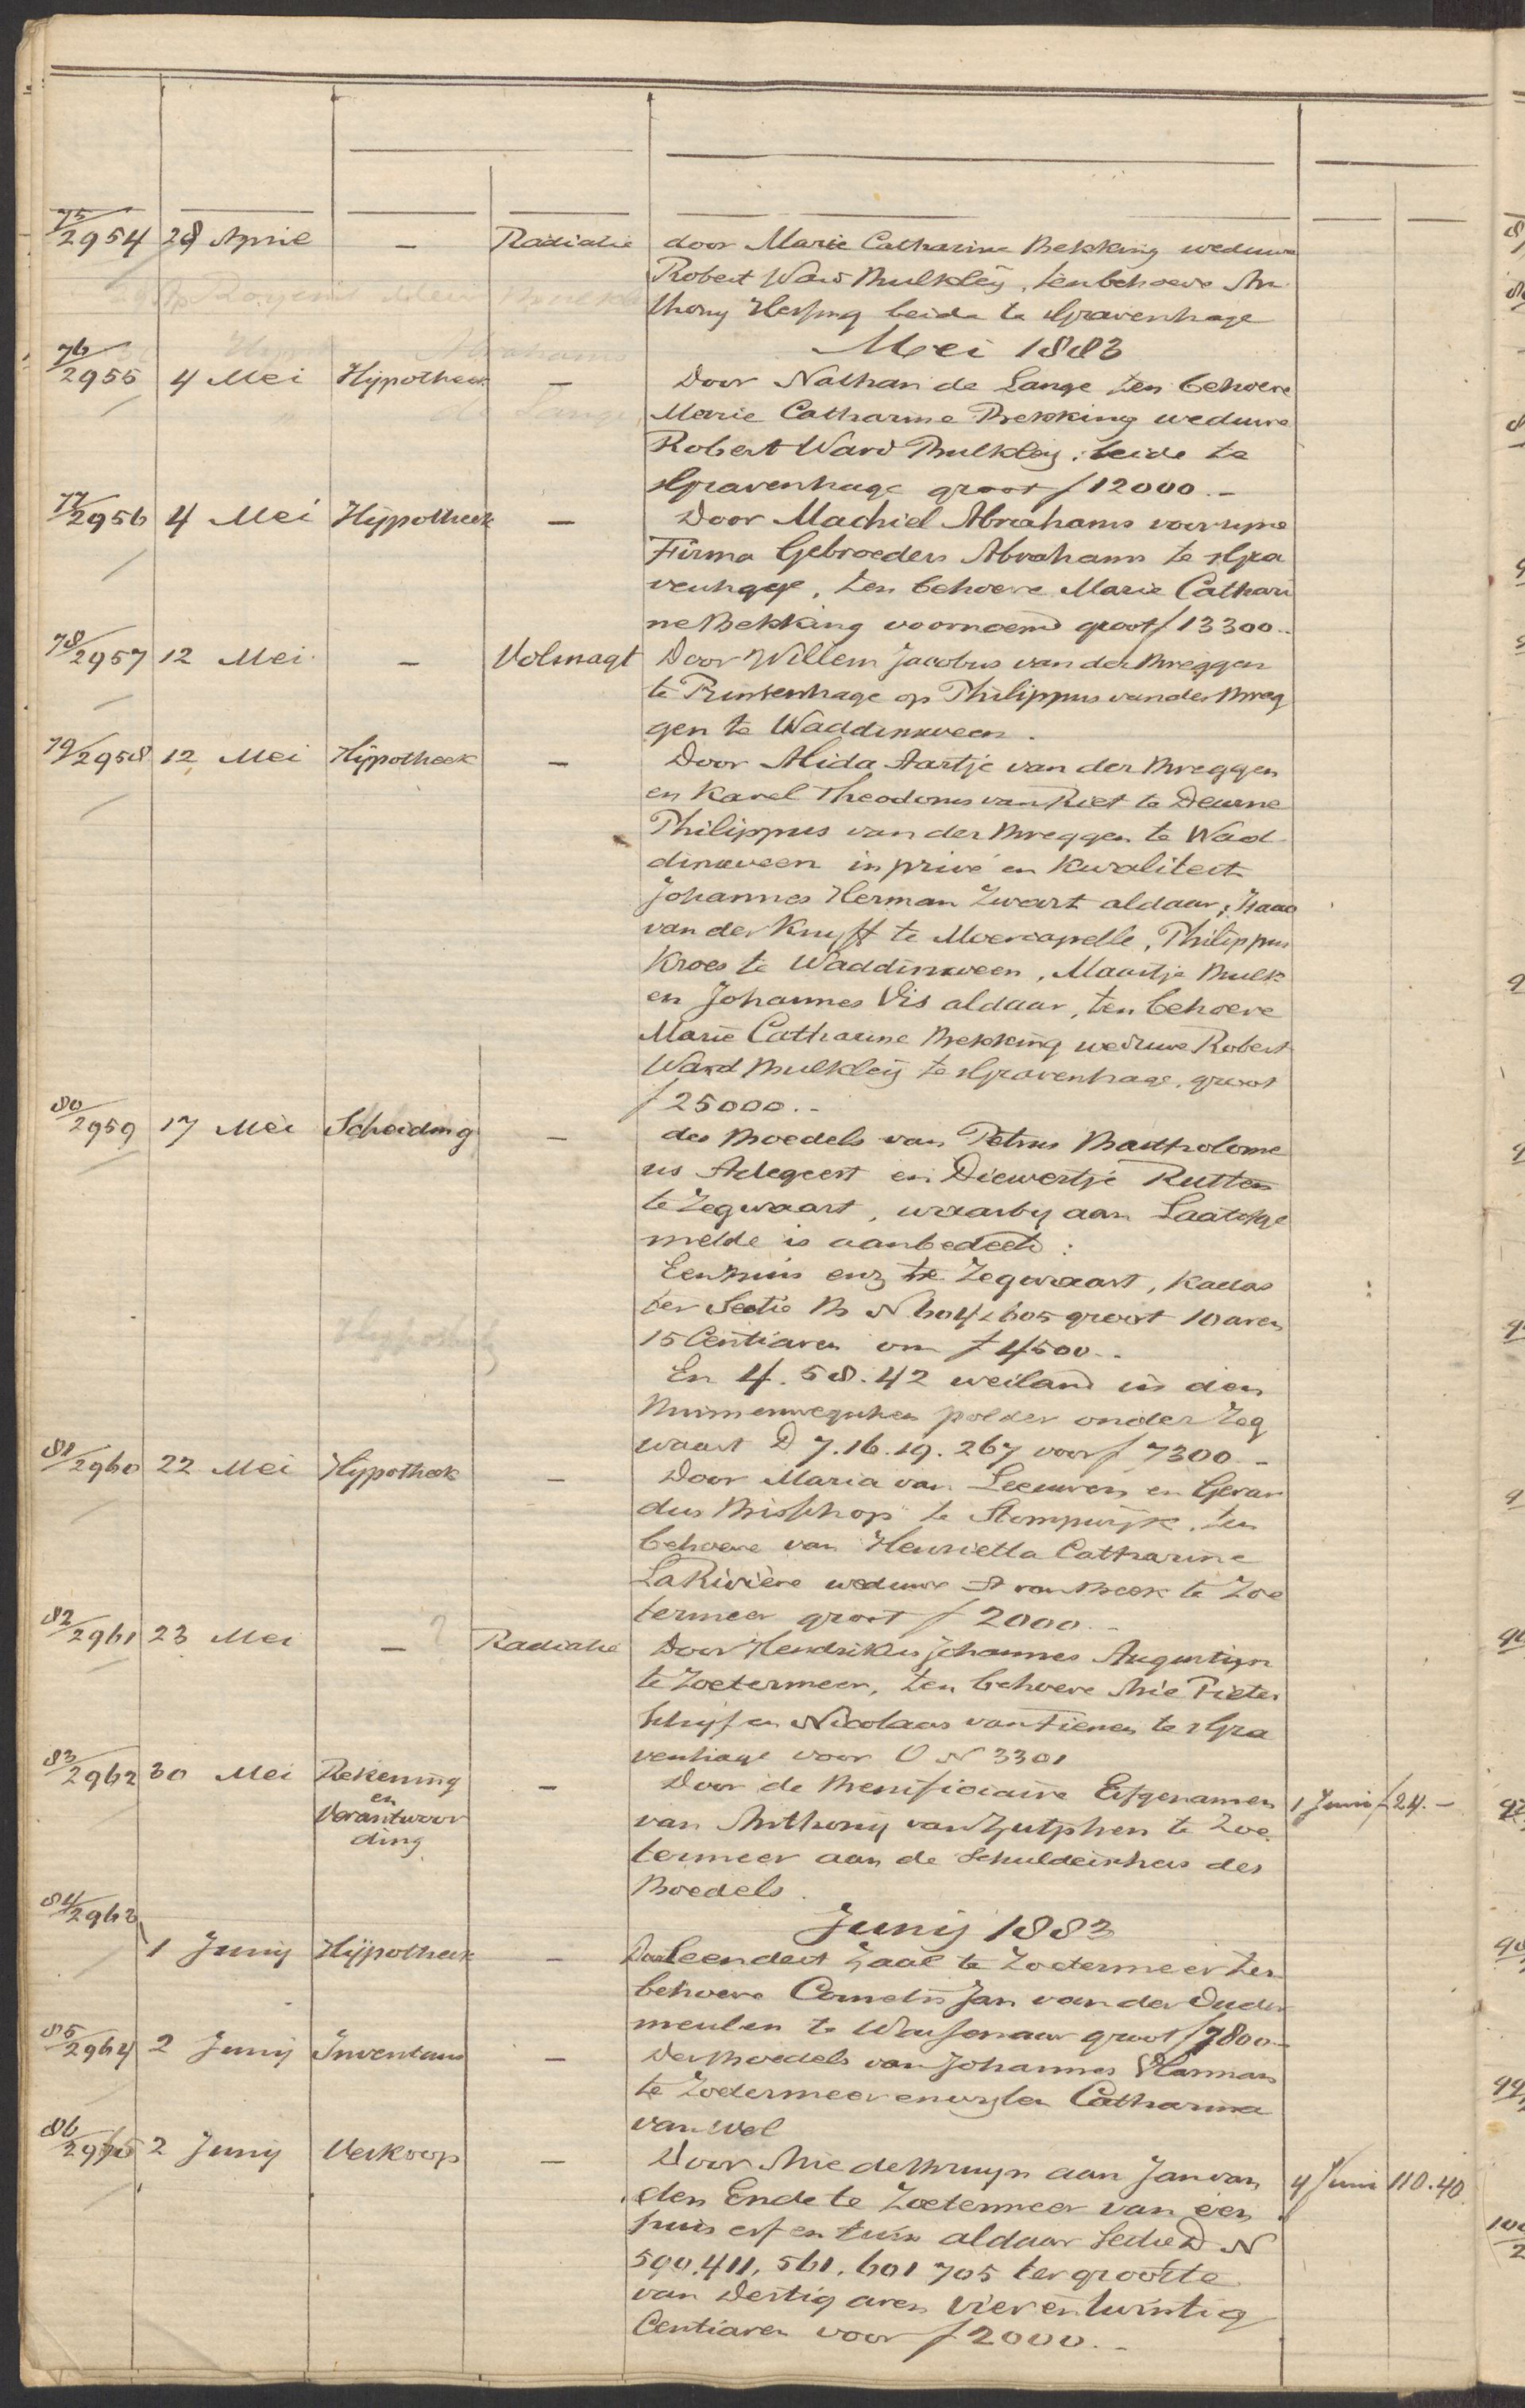 75/2954 28 April — Radiatie door Marie Catharine Bekking weduwe
Robert Ward Bulkley, ten behoeve An
thony Hessing beide te sGravenhage
Mei 1883
76/2955 4 Mei Hypotheek — Door Nathan de Lange ten behoeve
Marie Catharine Bekking weduwe
Robert Ward Bulkley, beide te
sGravenhage groot f 12000.-
77/2956 4 Mei Hypotheek — Door Machiel Abrahams voor zijne
Firma Gebroeders Abrahams te sGra
venhage, ten behoeve Marie Cathari
ne Bekking voornoemd groot f 13300.-
78/2957 12 Mei — Volmagt Door Willem Jacobus van der Breggen
te Prinsenhage op Philippus van der Breg
gen te Waddinxveen.
79/2958 12 Mei Hypotheek — Door Alida Aartje van der Breggen
en Karel Theodorus van Riet te Deurne
Philippus van der Breggen te Wad
dinxveen in privé en kwaliteit
Johannes Herman Zwart aldaar; Isaac
van der Knyff te Moercapelle, Philippus
Kroes te Waddinxveen, Maartje Bulk
en Johannes Vis aldaar, ten behoeve
Marie Catharine Bekking weduwe Robert
Ward Bulkley te sGravenhage, groot
f 25000.-
80/2959 17 Mei Scheiding — des Boedels van Petrus Bartholome
us Adegeest en Diewertje Rutten
te Zegwaart, waarby aan Laatstge
melde is aanbedeeld:
Een huis enz te Zegwaart, Kadas
ter Sectie B N 604, 605 groot 10 aren
15 Centiaren om f 4500.-
En 4.58.42 weiland in den
polder onder Zeg
waart D 7.16.19.267 voor f 7300.-
81/2960 22 Mei Hypotheek — Door Maria van Leeuwen en Gerar
dus Bisschop te Stompwijk, ten
behoeve van Henrietta Catharine
La Rivière weduwe A van Beek te Zoe
termeer groot f 2000.-
82/2961 23 Mei — Radiatie Door Hendrikus Johannes Augustijn
te Zoetermeer, ten behoeve Arie Pieter
Schijf en Nicolaas van Tienen te sGra
venhage voor O N 3301
83/2962 30 Mei Rekening — Door de Benificiaire Erfgenamen 1 Juni f 24.-
en
Verantwoor van Anthony van Zutphen te Zoe
ding termeer aan de Schuldeischers des
Boedels.
Junij 1883
84/2963 1 Junij Hypotheek — Door Leendert Zaal te Zoetermeer ten
behoeve Cornelis Jan van der Ouder
meulen te Wassenaar groot f 7800.-
85/2964 2 Junij Inventaris — Des Boedels van Johannes Harmans
te Zoetermeer en wijlen Catharina
van Wel
86/2965 2 Junij Verkoop — Door Arie de Bruyn aan Jan van 4 Juni 110.40
den Ende te Zoetermeer van een
huis erf en tuin aldaar Sectie D N
590.411, 561, 601 705 ter grootte
van Dertig aren Vierentwintig
Centiaren voor f 2000.-